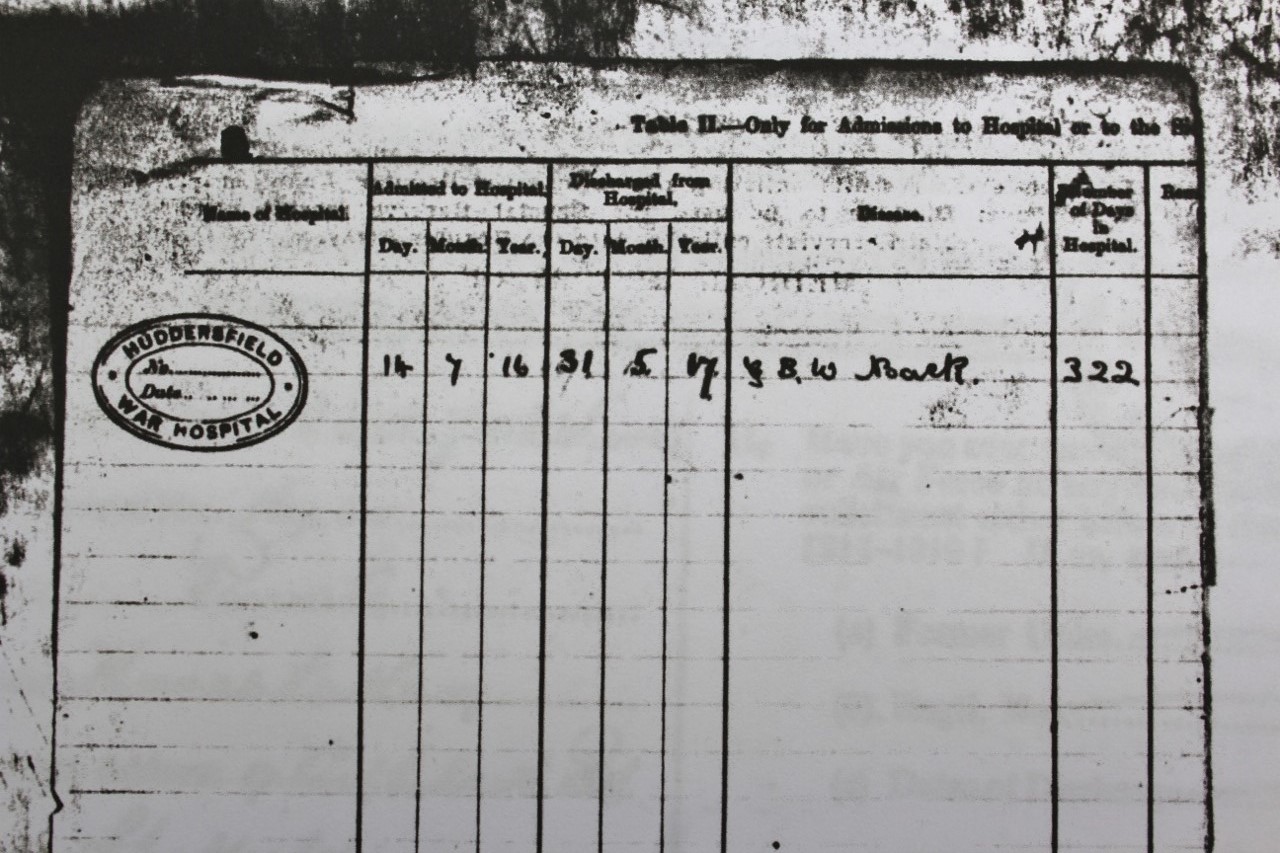 Table II.—Only for Admissions to Hospital or to the
Name of Hospital.
Admitted to Hospital.
Discharged from
Hospital,
Disease.
Number
of Days
in
Hospital.
Day. Month. Year. Day. Month. Year.
HUDDERSFIELD
No.
Date
WAR HOSPITAL
14 7 16 31 5 17 B. W Back. 322